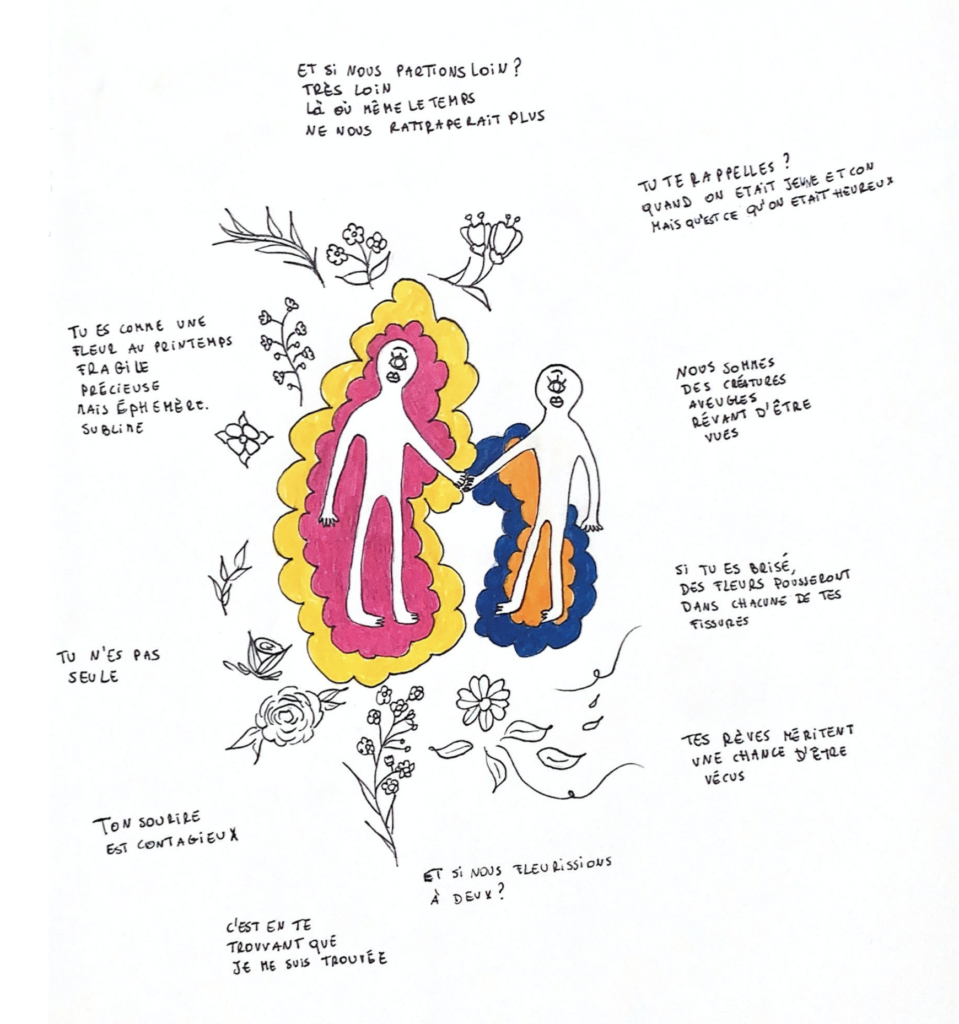 ET SI NOUS PARTIONS LOIN?
TRÈS LOIN
LÀ OÙ MÊME LE TEMPS
NE NOUS RATTRAPERAIT PLUS
TU TE RAPPELLES?
QUAND ON ETAIT JEUNE ET CON
MAIS QU'EST CE QU'ON ETAIT HEUREUX
TU ES COMME UNE
FLEUR AU PRINTEMPS
FRAGILE
PRÉCIEUSE
MAIS ÉPHEMÈRE.
SUBLIME
NOUS SOMMES
DES CRÉATURES
AVEUGLES
RÊVANT D'ÊTRE
VUES
SI TU ES BRISÉ,
DES FLEURS POUSSERONT
DANS CHACUNE DE TES
FISSURES
TU N'ES PAS
SEULE
TES RÊVES MÉRITENT
UNE CHANCE D'ÊTRE
VÉCUS
TON SOURIRE
EST CONTAGIEUX
ET SI NOUS FLEURISSIONS
À DEUX?
C'EST EN TE
TROUVANT QUE
JE ME SUIS TROUVÉE